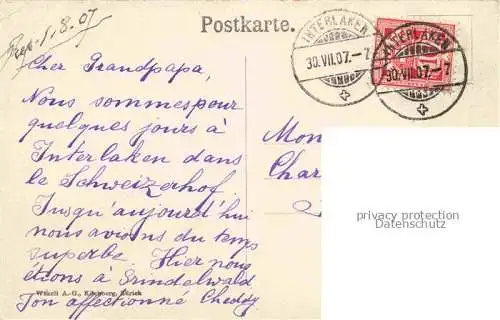 Rep. 1.8.07
Postkarte.
INTERLAKEN
30.VII.07.–7
INTERLAKEN
30.VII.07.–7
Cher Grandpapa,
Nous sommes pour
quelques jours à
Interlaken dans
le Schweizerhof
Jusqu'aujourd'hui
nous avions du temps
superbe. Hier nous
étions à Grindelwald
Ton affectionné Cheddy
Mon
Char
privacy protection
for us and our
Wehrli A.-G., Kilchberg, Zürich